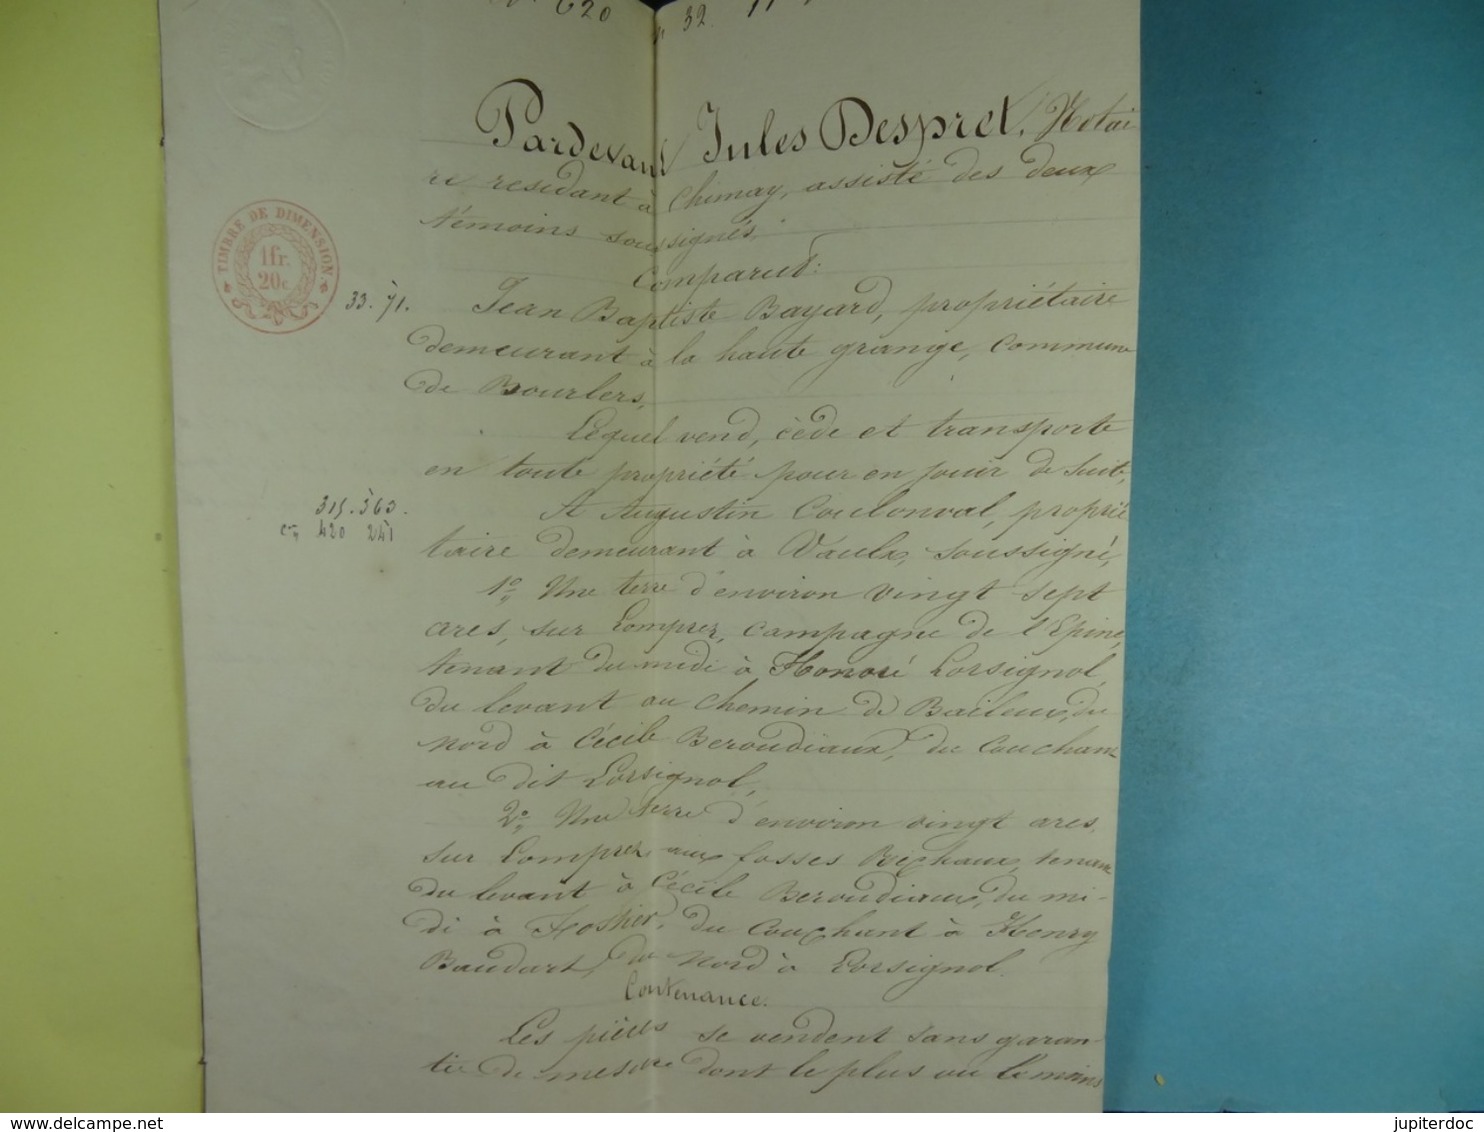 620
n° 32.
Pardevant Jules Despret, Notai
re residant à Chimay, assisté des deux
témoins soussignés,
TIMBRE DE DIMENSION.
1fr.
20c
Comparut:
33. 71.
Jean Baptiste Bayard, propriétaire
demeurant à la haute grange, commune
de Bourlers,
Lequel vend, cède et transporte
en toute propriété pour en jouir de suite,
315. 363.
420 241
A Augustin Coulonval, proprié
taire demeurant à Vaulx, soussigné,
1° Une terre d'environ vingt sept
ares, sur Lompret, campagne de l'Epine,
tenant du midi à Honoré Lorsignol,
du levant au chemin de Baileux, du
nord à Cécile Beroudiaux, du couchant
au dit Lorsignol,
2° Une terre d'environ vingt ares,
sur Lompret, aux fosses Bechaux, tenant
du levant à Cécile Beroudiaux, du mi-
di à Hostier, du couchant à Henry
Baudart, du nord à Lorsignol.
Contenance.
Les pièces se vendent sans garan-
tie de mesure dont le plus ou le moins
www.delcampe.net
jupiterdoc